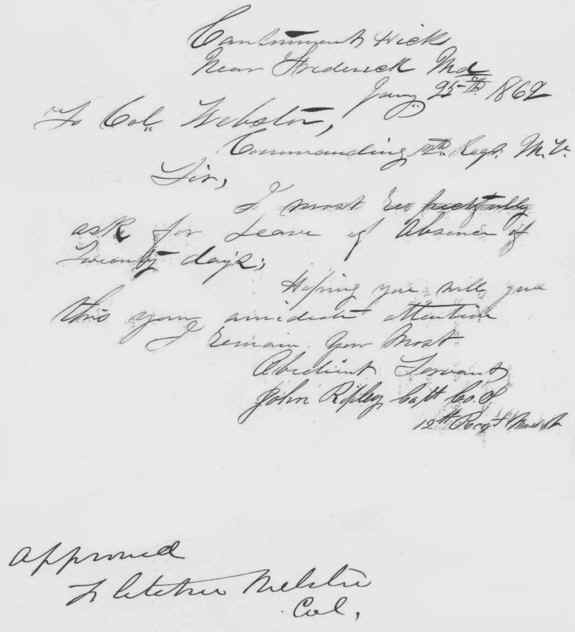 Cantonment Hicks
Near Frederick Md
Jany 25th 1862
To Col. Webster,
Commanding 12th Regt. M.V.
Sir,
I most respectfully
ask for Leave of Absence of
Twenty days;
Hoping you will give
this your attention
I remain Your Most
Obedient Servant
John Ripley Capt Co.
12th Regt Mass
Approved
Fletcher Webster
Col.